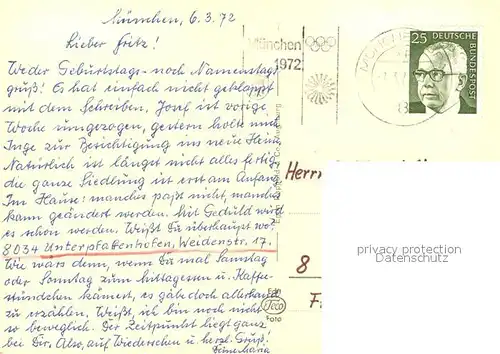 München, 6.3.72
Lieber Fritz!
Weder Geburtstags- noch Namenstags-
gruß! Es hat einfach nicht geklappt
mit dem Schreiben, Josef ist vorige
Woche umgezogen, gestern holte mich
Inge zur Besichtigung ins neue Heim.
Natürlich ist längst nicht alles fertig,
die ganze Siedlung ist erst am Anfang.
Im Hause! manches paßt nicht, manches
kann geändert werden. Mit Geduld wird
es schon werden. Weißt Du überhaupt wo?
8034 Unterpfaffenhofen, Weidenstr. 17.
Wie wärs denn, wenn Du mal Samstag
oder Sonntag zum Mittagessen u. Kaffee-
stündchen kämest, es gäbe doch allerhand
zu erzählen. Weißt, ich bin noch nicht
so beweglich. Der Zeitpunkt liegt ganz
bei Dir. Also, auf Wiederschen u. herzl. Gruß!
München
1972
25
DEUTSCHE
BUNDESPOST
Herrn
privacy protection
watermark
8
F
Foto